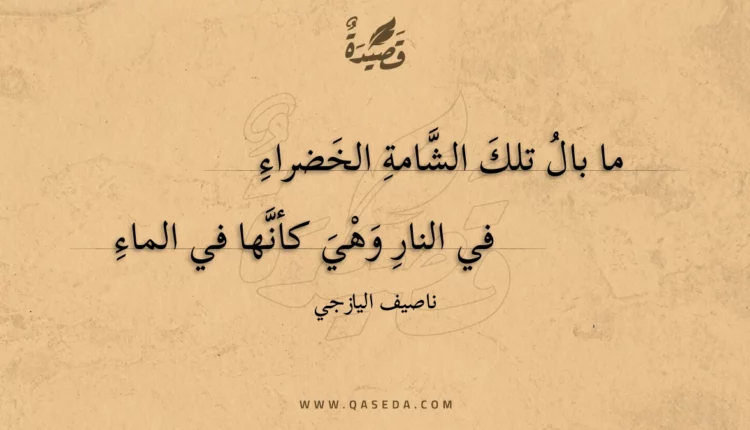 قَصِيْدَةٌ
ما بالُ تلكَ الشَّامةِ الخَضراءِ
في النارِ وَهْيَ كأنَّها في الماءِ
ناصيف اليازجي
WWW.QASEDA.COM